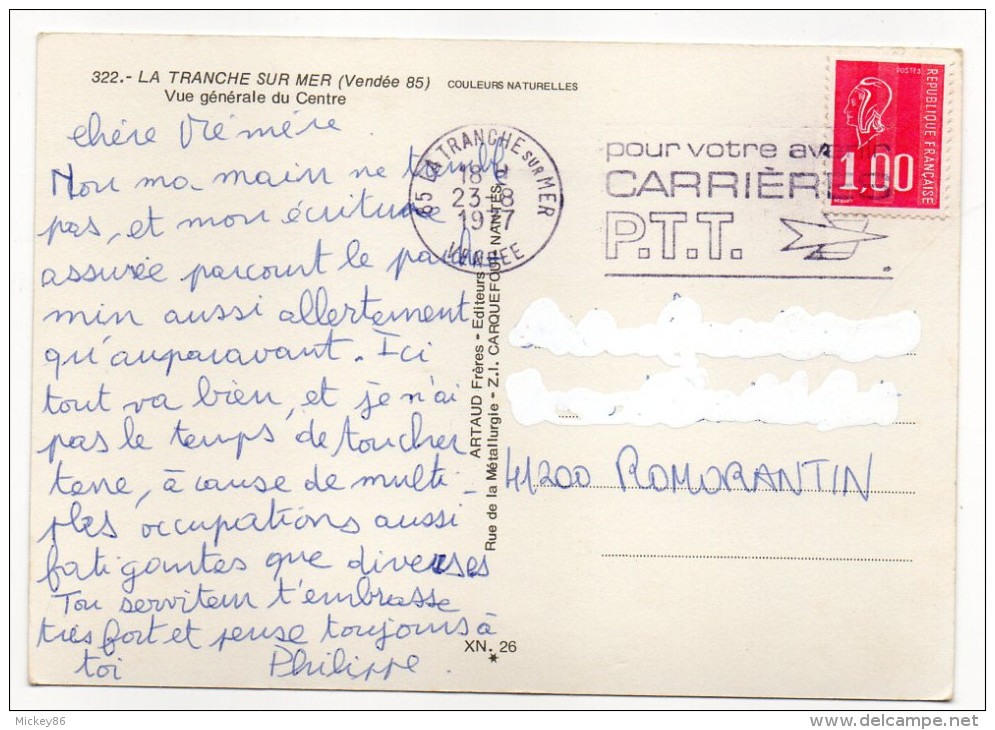 322.- LA TRANCHE SUR MER (Vendée 85) COULEURS NATURELLES
Vue générale du Centre
chère Mémère
Non ma main ne tremble
pas, et mon écriture
assurée parcourt le parche-
min aussi allertement
qu'auparavant. Ici
tout va bien, et je n'ai
pas le temps de toucher
terre, à cause de multi-
ples occupations aussi
fatigantes que diverses
Ton serviteur t'embrasse
très fort et pense toujours à
toi Philippe.
85 LA TRANCHE SUR MER
18 H
23-8
1977
VENDEE
pour votre avenir
CARRIÈRES
P.T.T.
POSTES
REPUBLIQUE FRANÇAISE
1,00
ARTAUD Frères - Editeurs
Rue de la Métallurgie - Z.I. CARQUEFOU NANTES
41200 ROMORANTIN
XN. 26
Mickey86
delcampe.net